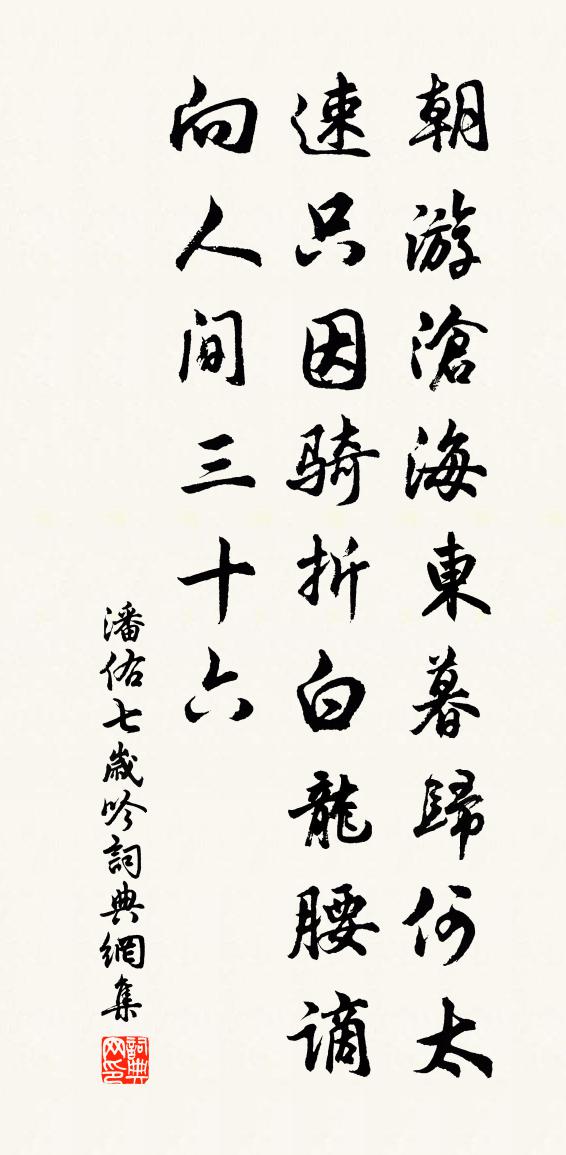 朝游滄海東暮歸何太
速只因骑折白龍腰謫
向人间三十六
潘佑七歲吟詞典網集
詞典网印